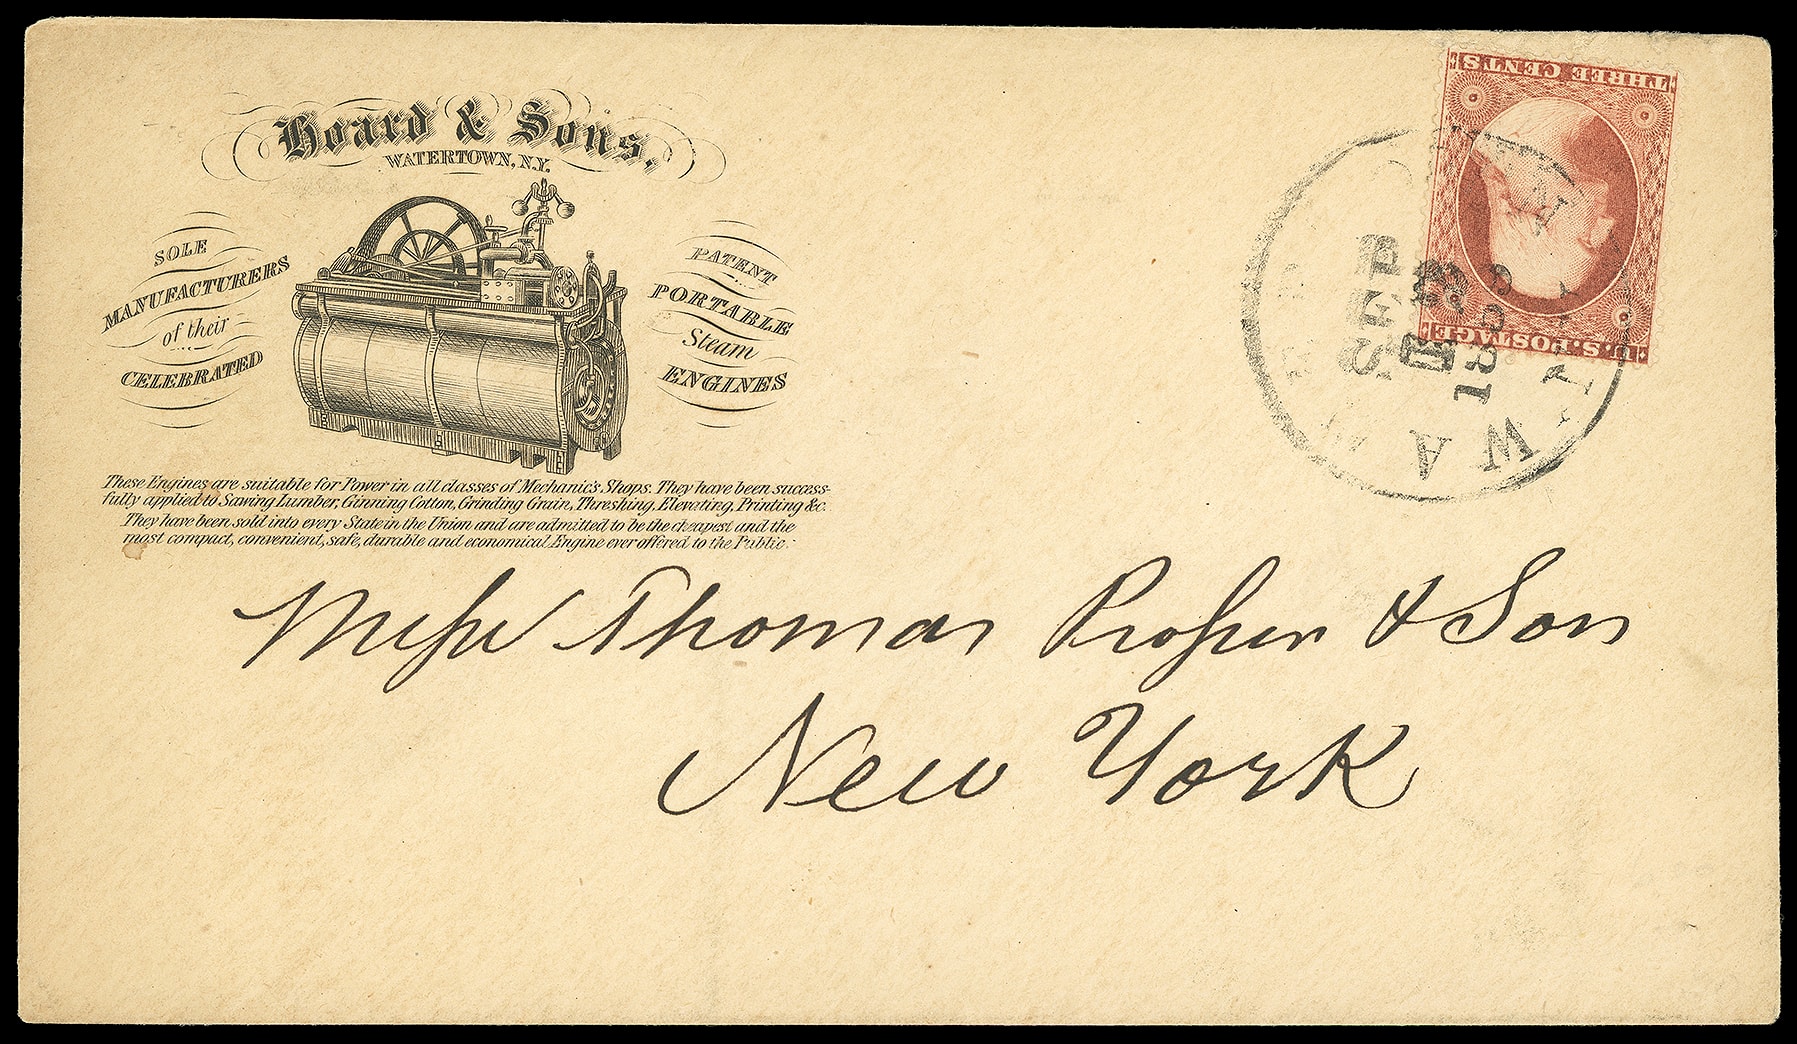 Hoard & Sons,
WATERTOWN, N.Y.
SOLE
MANUFACTURERS
of their
CELEBRATED
PATENT
PORTABLE
Steam
ENGINES
These Engines are suitable for Power in all classes of Mechanic's Shops. They have been success-
fully applied to Sawing Lumber, Ginning Cotton, Grinding Grain, Threshing, Elevating, Printing &c.
They have been sold into every State in the Union and are admitted to be the cheapest and the
most compact, convenient, safe, durable and economical Engine ever offered to the Public.
THREE CENTS
U.S. POSTAGE
WAT
SEP
Messrs Thomas Prosser & Son
New York